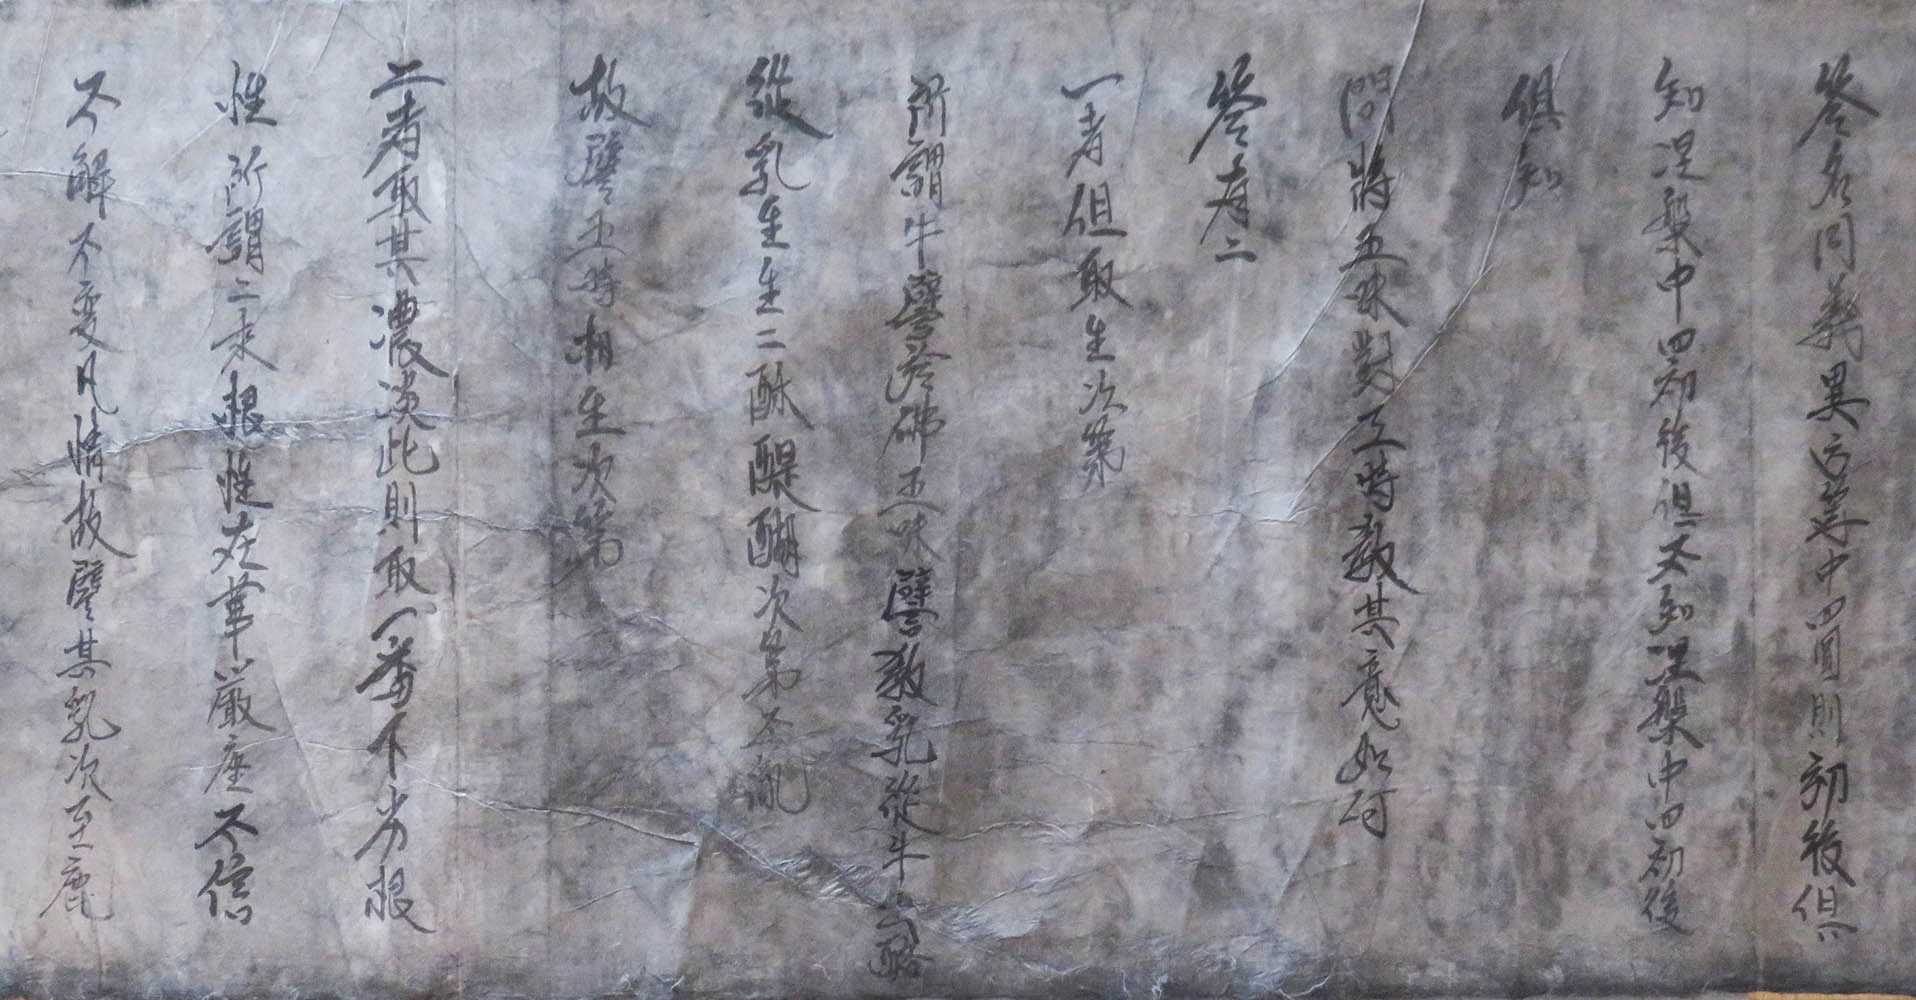 答名同義異方等中四圓則初後但
知涅槃中四初後但不知涅槃中四初後
俱知
問將五味對五時教其意如何
答有二
一者但取生次第
所謂牛譬於佛五味譬教乳從牛出酪
從乳生生二酥醍醐次第不亂
故譬五時相生次第
二者取其濃淡此則取一番下劣根
性所謂二乘根性在華嚴座不信
不解不變凡情故譬其乳次至鹿